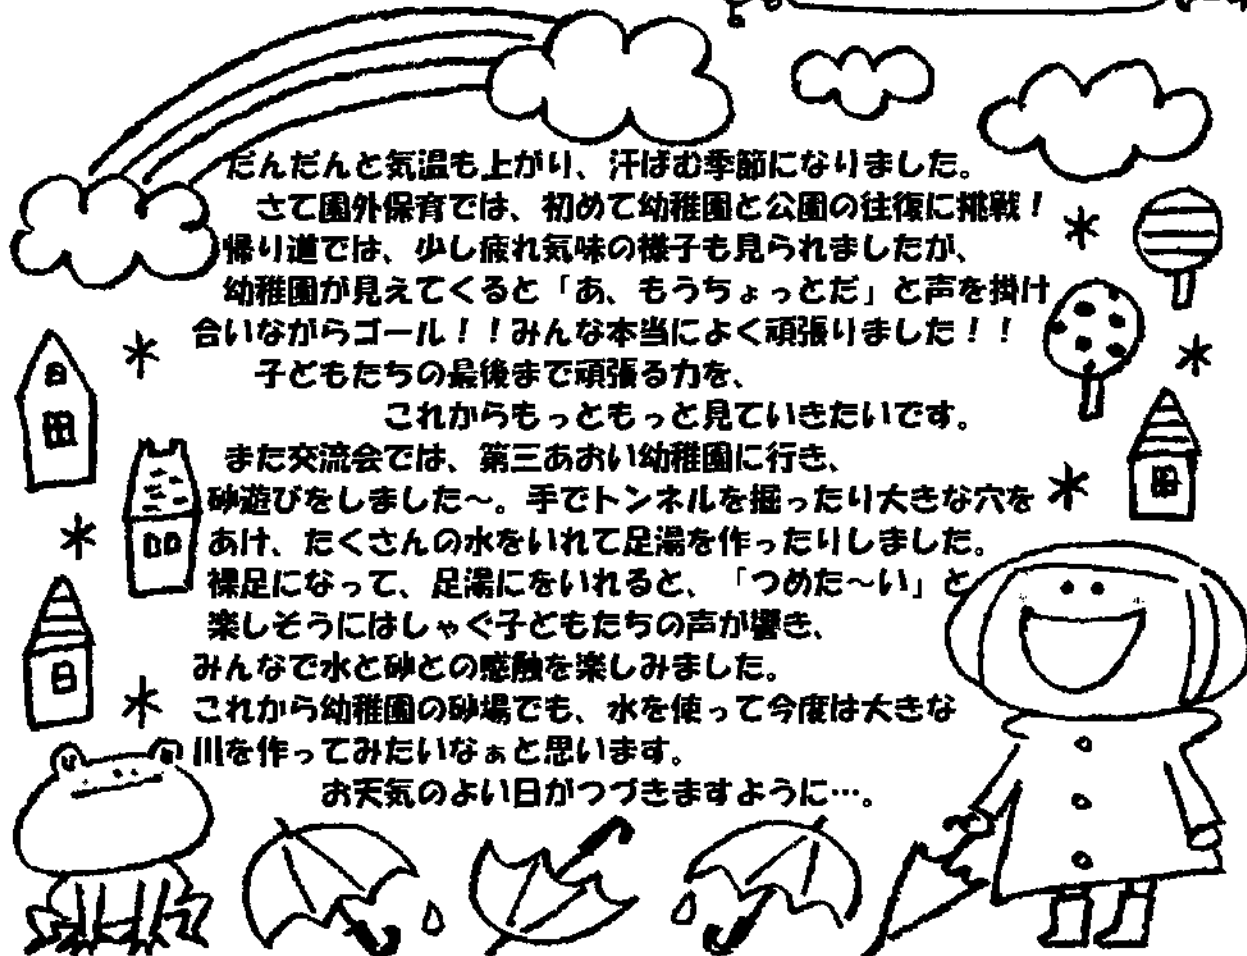 だんだんと気温も上がり、汗ばむ季節になりました。
さて園外保育では、初めて幼稚園と公園の往復に挑戦！
帰り道では、少し疲れ気味の様子も見られましたが、
幼稚園が見えてくると「あ、もうちょっとだ」と声を掛け
合いながらゴール！！みんな本当によく頑張りました！！
子どもたちの最後まで頑張る力を、
これからもっともっと見ていきたいです。
また交流会では、第三あおい幼稚園に行き、
砂遊びをしました～。手でトンネルを掘ったり大きな穴を
あけ、たくさんの水をいれて足湯を作ったりしました。
裸足になって、足湯にをいれると、「つめた～い」と
楽しそうにはしゃぐ子どもたちの声が響き、
みんなで水と砂との感触を楽しみました。
これから幼稚園の砂場でも、水を使って今度は大きな
川を作ってみたいなぁと思います。
お天気のよい日がつづきますように…。